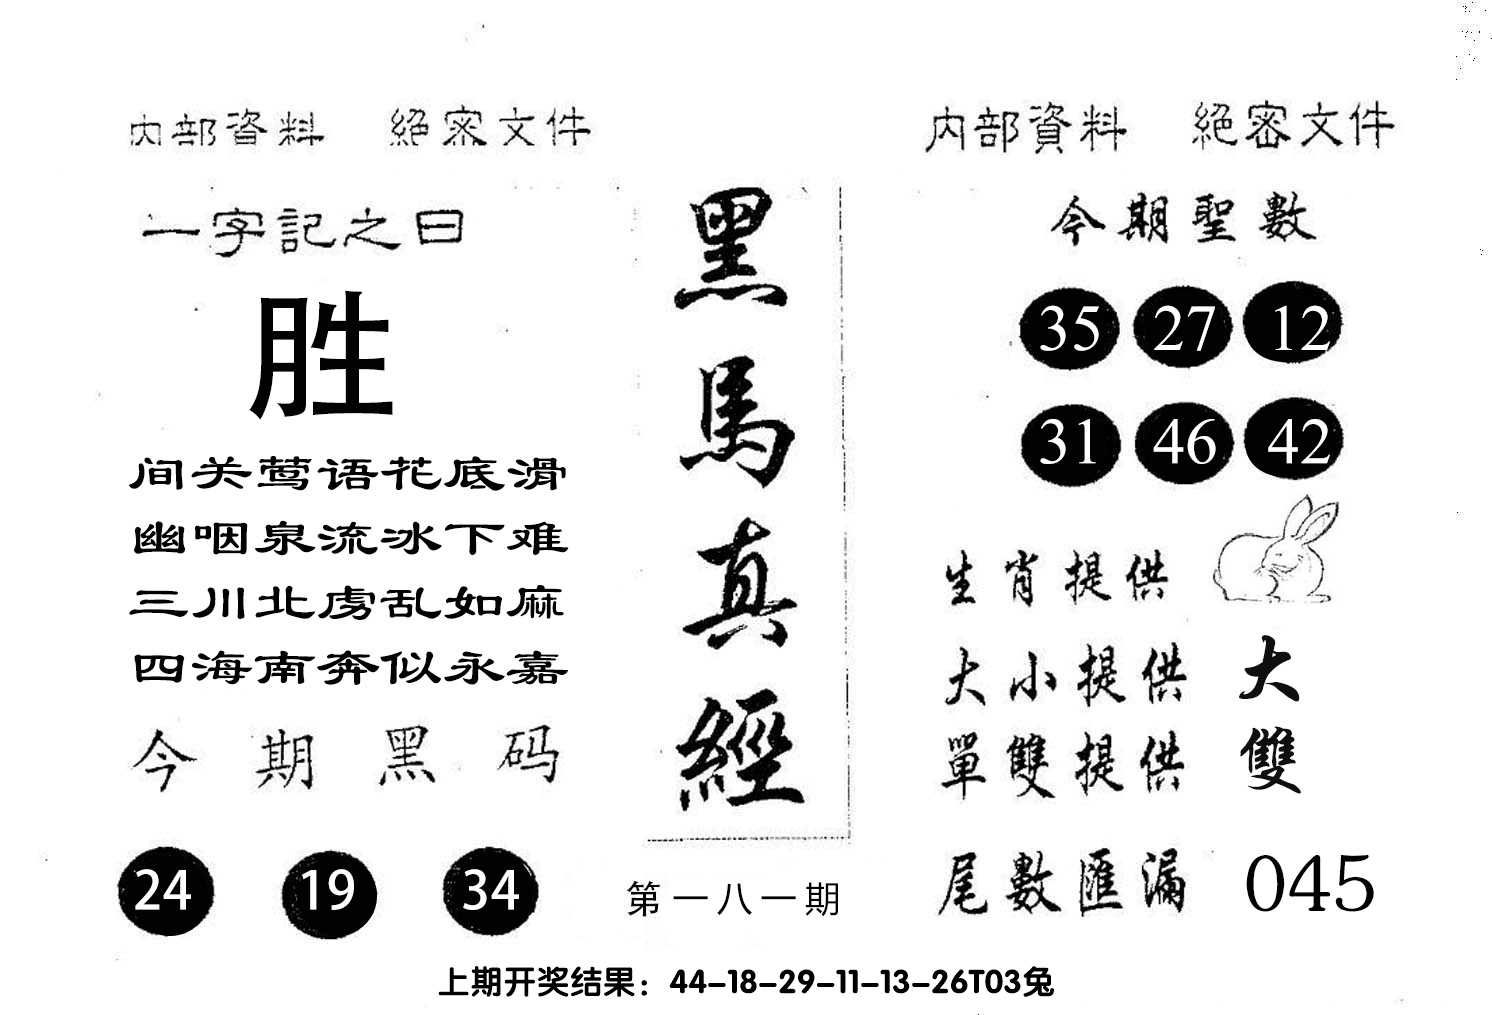 内部資料 絕密文件
一字記之曰
胜
间关莺语花底滑
幽咽泉流冰下难
三川北虏乱如麻
四海南奔似永嘉
今期黑码
24 19 34
黑馬真經
第一八一期
内部資料 絕密文件
今期聖數
35 27 12
31 46 42
生肖提供
大小提供 大
單雙提供 雙
尾數匯漏 045
上期开奖结果：44-18-29-11-13-26T03兔